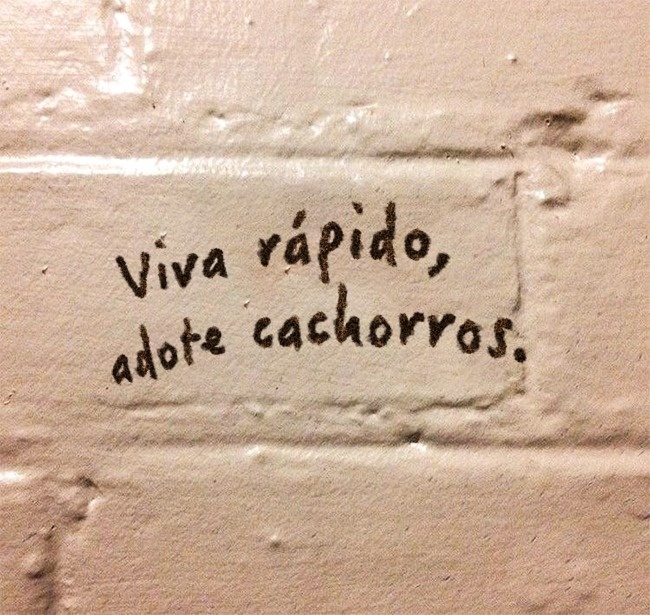 Viva rápido,
adote cachorros.